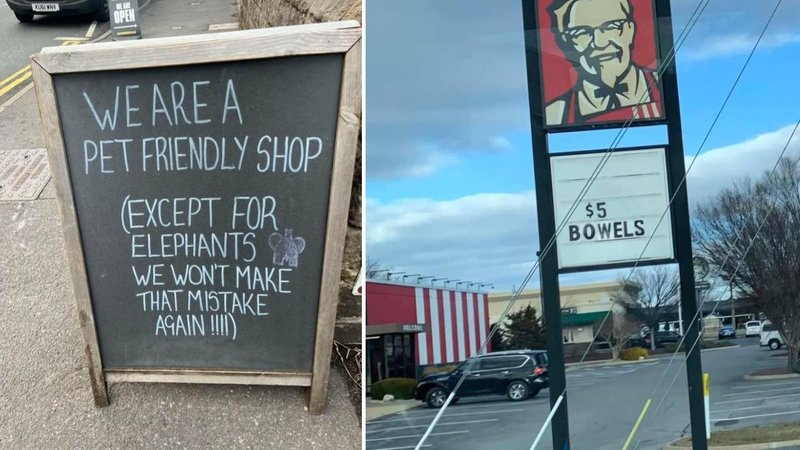 KU61 WNV
WE ARE
OPEN
WE ARE A
PET FRIENDLY SHOP
(EXCEPT FOR
ELEPHANTS
WE WON'T MAKE
THAT MISTAKE
AGAIN !!!!)
$5
BOWELS